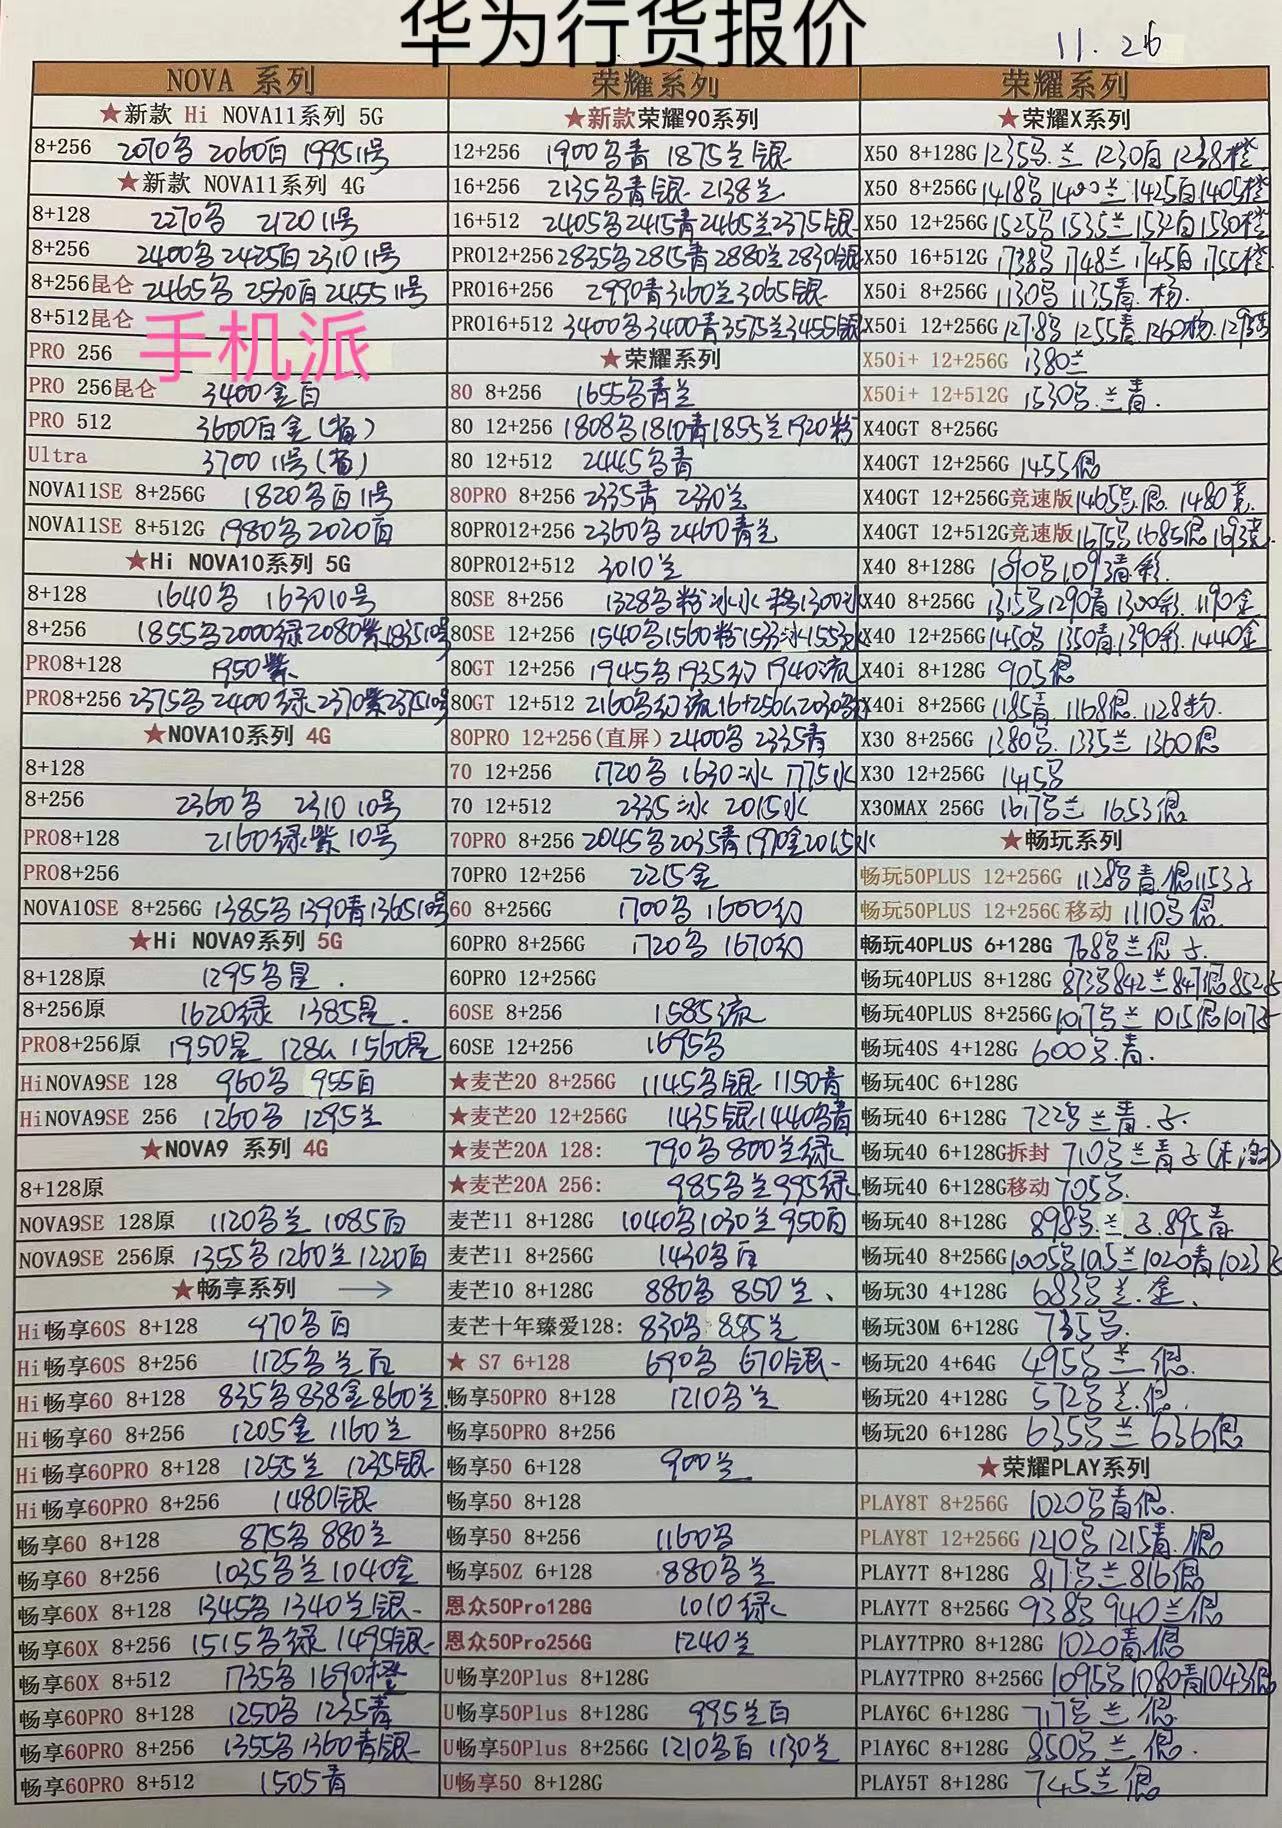 华为行货报价
11.26
NOVA 系列
★新款 Hi NOVA11系列 5G
8+256 2070名 2060百 1995 11号
★新款 NOVA11系列 4G
8+128 2270名 2120 11号
8+256 2400名 2425百 2310 11号
8+256昆仑 2465名 2530百 2455 11号
8+512昆仑
手机派
PRO 256
PRO 256昆仑 3400金百
PRO 512 3600百金(省)
Ultra 3700 11号(省)
NOVA11SE 8+256G 1820名百11号
NOVA11SE 8+512G 1980名2020百
★Hi NOVA10系列 5G
8+128 1640名 1630 10号
8+256 1855名2000绿2080紫1835 10号
PRO8+128 1950紫
PRO8+256 2375名2400绿2370紫2375 10号
★NOVA10系列 4G
8+128
8+256 2360名 2310 10号
PRO8+128 2160绿紫10号
PRO8+256
NOVA10SE 8+256G 1385名1390青1365 10号
★Hi NOVA9系列 5G
8+128原 1295名星.
8+256原 1620绿 1385星.
PRO8+256原 1950星 128G 1560星
HiNOVA9SE 128 960名 955百
HiNOVA9SE 256 1260名 1295兰
★NOVA9 系列 4G
8+128原
NOVA9SE 128原 1120名兰 1085百
NOVA9SE 256原 1355名1260兰1220百
★畅享系列 →
Hi畅享60S 8+128 970名百
Hi畅享60S 8+256 1125名兰百
Hi畅享60 8+128 835名838金860兰
Hi畅享60 8+256 1205金 1160兰
Hi畅享60PRO 8+128 1255兰 1235银
Hi畅享60PRO 8+256 1480银
畅享60 8+128 875名 880兰
畅享60 8+256 1035名兰1040金
畅享60X 8+128 1345名1340兰银
畅享60X 8+256 1515名绿1495银
畅享60X 8+512 1735名1690橙
畅享60PRO 8+128 1250名 1235青
畅享60PRO 8+256 1355名1360青银
畅享60PRO 8+512 1505青
荣耀系列
★新款荣耀90系列
12+256 1900名青 1875兰银
16+256 2135名青银 2138兰
16+512 2405名2415青2465兰2375银
PRO12+256 2835名2815青2880兰2830银
PRO16+256 2990青3160兰3065银
PRO16+512 3400名3400青3575兰3455银
★荣耀系列
80 8+256 1655名青兰
80 12+256 1808名1810青1855兰1920粉
80 12+512 2445名青
80PRO 8+256 2335青 2330兰
80PRO12+256 2360名2460青兰
80PRO12+512 3010兰
80SE 8+256 1328名粉冰水 1300冰
80SE 12+256 1540名1560粉1533冰1553水
80GT 12+256 1945名1935幻 1940流
80GT 12+512 2160名幻流16+256G2030名幻
80PRO 12+256(直屏) 2400名2335青
70 12+256 1720名1630冰 1775水
70 12+512 2335冰 2015水
70PRO 8+256 2045名2035青1970金2015水
70PRO 12+256 2215金
60 8+256G 1700名1600幻
60PRO 8+256G 1720名 1670幻
60PRO 12+256G
60SE 8+256 1585流
60SE 12+256 1695名
★麦芒20 8+256G 1145名银 1150青
★麦芒20 12+256G 1435银1440名青
★麦芒20A 128: 790名800兰绿
★麦芒20A 256: 985名兰995绿
麦芒11 8+128G 1040名1030兰950百
麦芒11 8+256G 1430名百
麦芒10 8+128G 880名 850兰、
麦芒十年臻爱128: 830名 885兰
★ S7 6+128 690名 670银
畅享50PRO 8+128 1210名兰
畅享50PRO 8+256
畅享50 6+128 900兰
畅享50 8+128
畅享50 8+256 1160名
畅享50Z 6+128 880名兰
恩众50Pro128G 1010绿
恩众50Pro256G 1240兰
U畅享20Plus 8+128G
U畅享50Plus 8+128G 995兰百
U畅享50Plus 8+256G 1210名百 1130兰
U畅享50 8+128G
荣耀系列
★荣耀X系列
X50 8+128G 1235名.兰 1230百 1238橙
X50 8+256G 1418名 兰 1425百1405橙
X50 12+256G 1525名1535兰1532百1530橙
X50 16+512G 1738名1748兰1745百1755橙
X50i 8+256G 1130名 1135青.杨.
X50i 12+256G 1278名 1255青.1260杨.
X50i+ 12+256G 1380兰
X50i+ 12+512G 1530名.兰青.
X40GT 8+256G
X40GT 12+256G 1455银
X40GT 12+256G竞速版 1465名.银. 1480竞.
X40GT 12+512G竞速版 1675名1685银1693竞.
X40 8+128G 1090名1093青.彩.
X40 8+256G 1315名1290青1300彩.1190金
X40 12+256G 1450名1350青1390彩.1440金
X40i 8+128G 905银
X40i 8+256G 1185青.1168银.1128粉.
X30 8+256G 1380名.1335兰1360银
X30 12+256G 1445名
X30MAX 256G 1617名兰 1653银
★畅玩系列
畅玩50PLUS 12+256G 1128名青.银1153子
畅玩50PLUS 12+256G移动 1110名银.
畅玩40PLUS 6+128G 768名兰银子.
畅玩40PLUS 8+128G 873名842兰847银852子
畅玩40PLUS 8+256G 1017名兰1015银1017子
畅玩40S 4+128G 600名.青.
畅玩40C 6+128G
畅玩40 6+128G 722名兰青.子.
畅玩40 6+128G拆封 710名兰青子
畅玩40 6+128G移动 705名.
畅玩40 8+128G 898名.兰子.895青
畅玩40 8+256G 1005名1015兰1020青1023子
畅玩30 4+128G 683名兰.金.
畅玩30M 6+128G 735名.
畅玩20 4+64G 495名兰银.
畅玩20 4+128G 572名兰.银.
畅玩20 6+128G 635名兰636银
★荣耀PLAY系列
PLAY8T 8+256G 1020名青银.
PLAY8T 12+256G 1210名1215青.银
PLAY7T 8+128G 817名兰816银
PLAY7T 8+256G 938名940兰银
PLAY7TPRO 8+128G 1020青银
PLAY7TPRO 8+256G 1095名1080青1043银
PLAY6C 6+128G 717名兰银
PlAY6C 8+128G 850名兰银.
PLAY5T 8+128G 745兰银